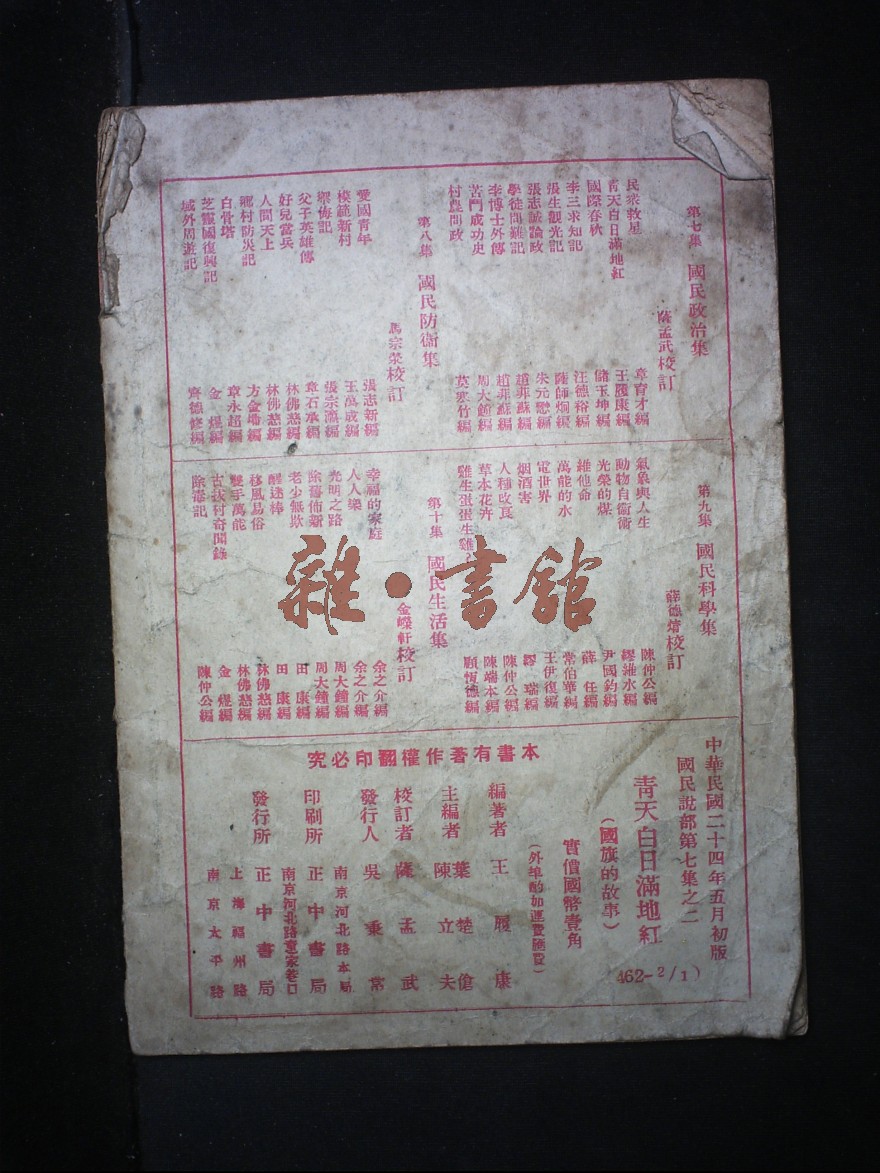 第七集 國民政治集
薩孟武校訂
民衆救星 章育才編
青天白日滿地紅 王履康編
國際春秋 儲玉坤編
李三求知記 汪德裕編
張生觀光記 薩師炯編
張志誠論政 朱元懋編
學徒問難記 趙非蘇編
李博士外傳 趙非蘇編
苦鬥成功史 周大鐘編
村農問政 莫寒竹編
第八集 國民防衛集
馬宗榮校訂
愛國青年 張志新編
模範新村 王萬成編
禦侮記 張宗濂編
父子英雄傳 章石承編
好兒當兵 林佛慈編
人間天上 林佛慈編
鄉村防災記 方金墉編
白骨塔 章永超編
芝靈國復興記 金煜編
域外周遊記 齊德修編
第九集 國民科學集
薛德焴校訂
氣象與人生 陳仲公編
動物自衞術 繆維水編
光榮的煤 尹國鈞編
維他命 薛任編
萬能的水 常伯華編
電世界 王伊復編
烟酒害 繆瑞編
人種改良 陳仲公編
草本花卉 陳端本編
雞生蛋蛋生雞 顧恆德編
第十集 國民生活集
金嶸軒校訂
幸福的家庭 余之介編
人人樂 余之介編
光明之路 周大鐘編
除舊佈新 周大鐘編
老少無欺 田康編
醒迷棒 田康編
移風易俗 林佛慈編
雙手萬能 林佛慈編
古坟村奇聞錄 金煜編
除毒記 陳仲公編
雜·書館
中華民國二十四年五月初版
國民說部第七集之二
青天白日滿地紅
(國旗的故事)
462-2/1)
實價國幣壹角
(外埠酌加運費匯費)
本書有著作權翻印必究
編著者 王履康
主編者 葉楚傖 陳立夫
校訂者 薩孟武
發行人 吳秉常
南京河北路本局
印刷所 正中書局
南京河北路童家巷口
發行所 正中書局
上海福州路
南京太平路